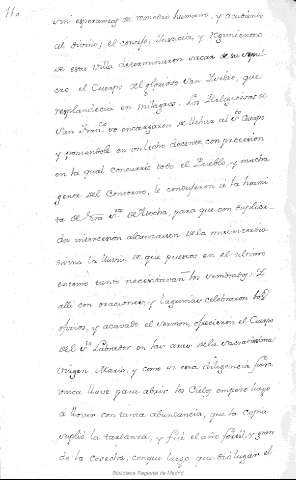 11a
sin esperanzas de remedio humano, y acudiendo
al divino; el concejo, Justicia, y Regimiento
de esta villa determinaron sacar de su sepul-
cro el Cuerpo del glorioso San Isidro, que
resplandecia en milagros. Los Religiosos de
San Fran.co se encargaron de llebar al Sto. Cuerpo
y poniendole en un lecho decente con procesion
en la qual concurrió todo el Pueblo, y mucha
gente del Contorno, le condujeron a la hermi
ta de Nra Sra. de Atocha, para que con duplica-
da intercesion alcanzasen de la misericordia
divina la lluvia de que puestos en el ultimo
extremo tanto necesitavan los sembrados; E
alli con oraciones, y lagrimas celebraron los
oficios, y acavado el sermon, ofrecieron el Cuerpo
del Sto. Labrador en las aras de la sacratisima
virgen Maria, y como si esta diligencia fuera
unica llave para abrir los Cielos empezo luego
a llover con tanta abundancia, que la copia
suplió la tardanza, y fué el año fertil, y grande
de la cosecha, conque luego que dió lugar el
Biblioteca Regional de Madrid